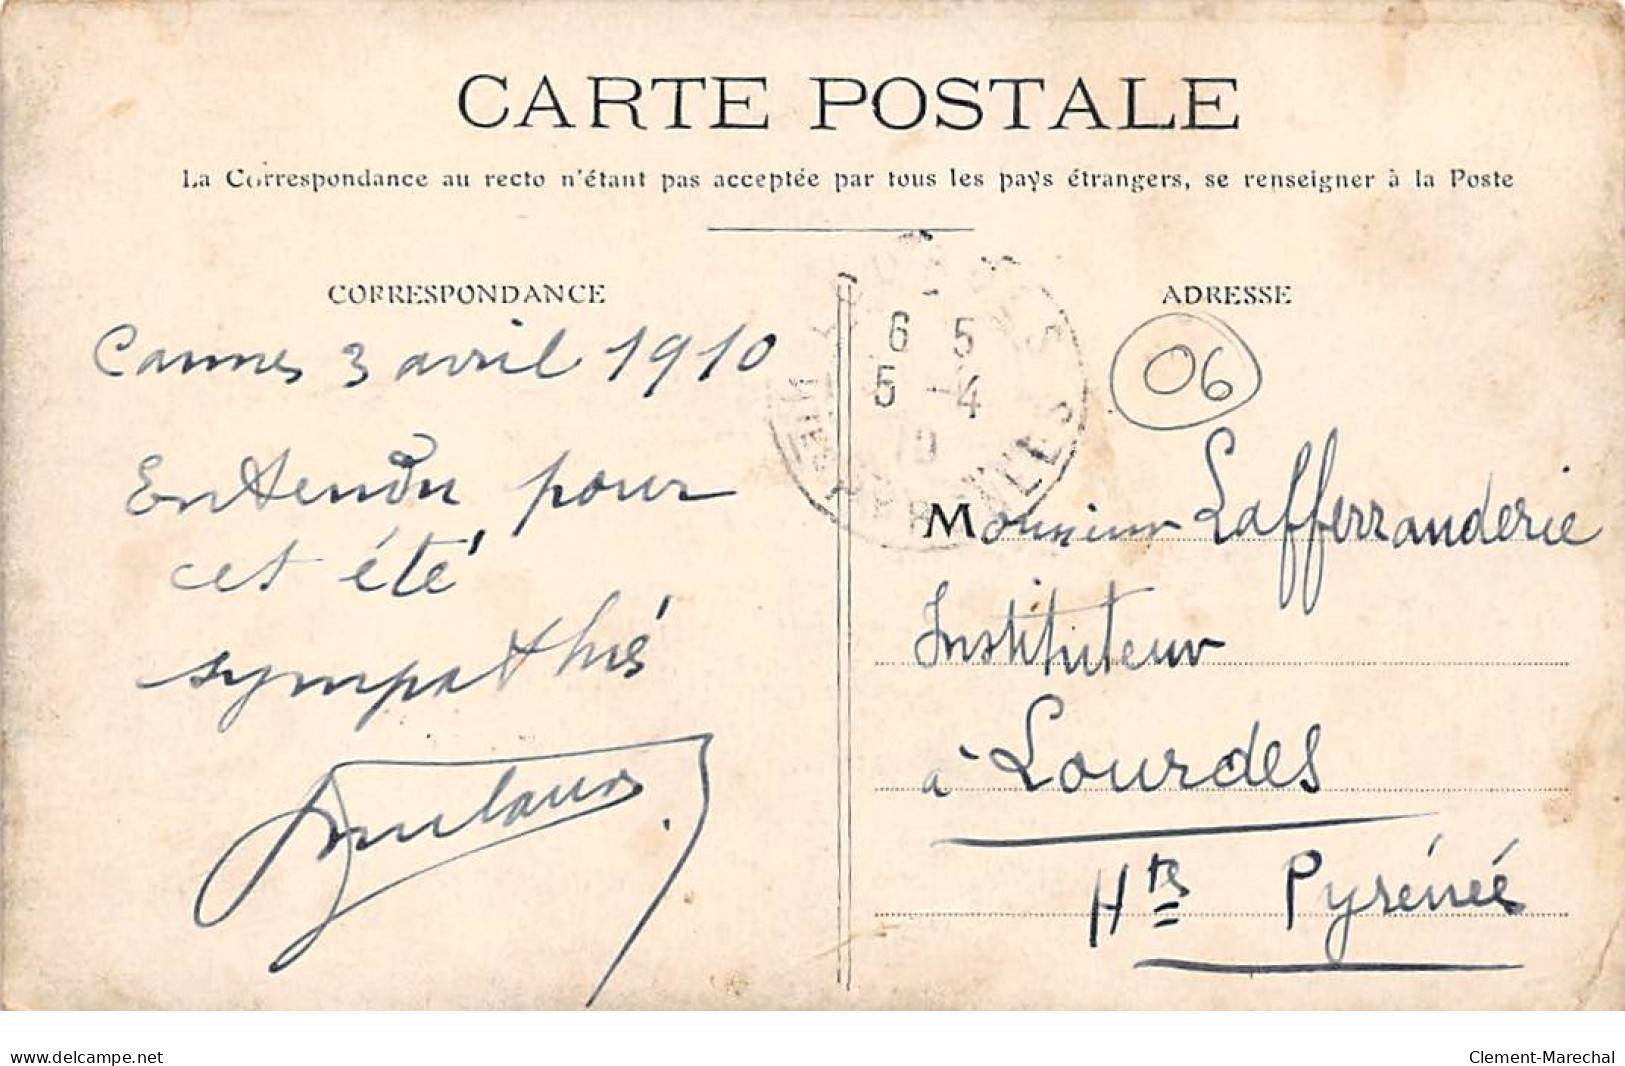 CARTE POSTALE
La Correspondance au recto n'étant pas acceptée par tous les pays étrangers, se renseigner à la Poste
CORRESPONDANCE
Cannes 3 avril 1910
Entendu pour
cet été
sympathies
ADRESSE
06
6 5
5 -4
10
PYRENEES
Monsieur Lafferranderie
Instituteur
à Lourdes
Htes Pyrénées
delcampe.net
Clement-Marechal